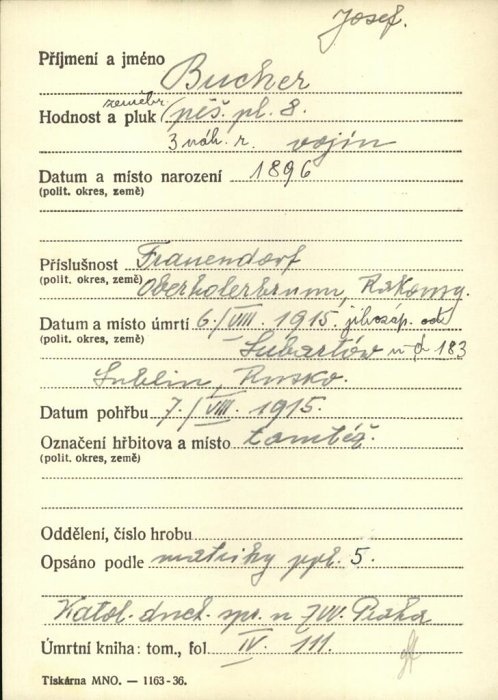 Josef.
Příjmení a jméno Bucher
Hodnost a pluk zeměbr. pěš. pl. 8.
3 náh. r. vojín
Datum a místo narození 1896
(polit. okres, země)
Příslušnost Frauendorf
(polit. okres, země) Oberholerbrunn, Rakousy.
Datum a místo úmrtí 6./VIII. 1915. jihozáp. od
(polit. okres, země) Lubartów 183
Lublin, Rusko.
Datum pohřbu 7./VIII. 1915.
Označení hřbitova a místo tamtéž.
(polit. okres, země)
Oddělení, číslo hrobu
Opsáno podle matriky ppl. 5.
Katol. duch. spr. u ZVV. Praha
Úmrtní kniha: tom., fol IV. 111.
Tiskárna MNO. — 1163-36.